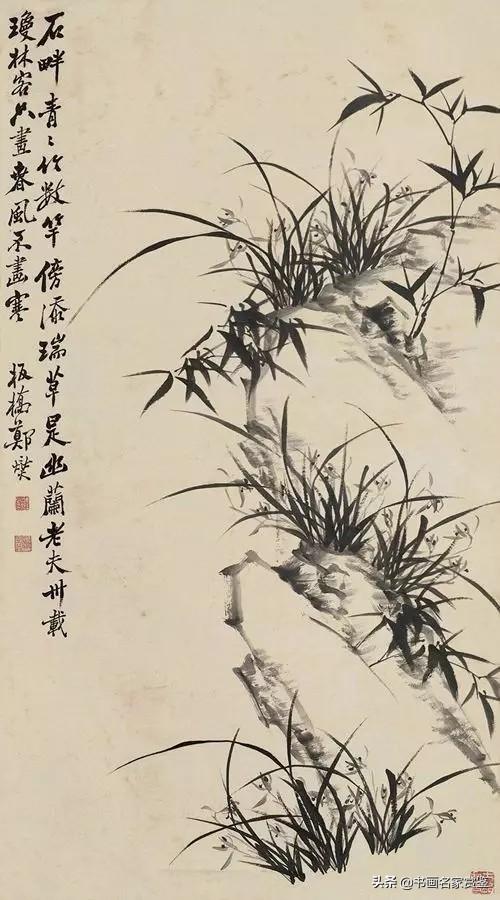 石畔青〻竹數竿傍添瑞草是幽蘭老夫卅載
瓊林客只畫春風不畫寒 板橋鄭燮
头条 @书画名家赏鉴